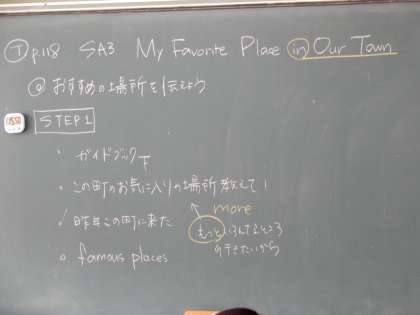 Ⓣ p.118 SA3 My Favorite Place in Our Town
◎ おすすめの場所を伝えよう
STEP1
・ガイドブック下
・この町のお気に入りの場所教えて！
・昨年この町に来た
more
もっといろんなところ
行きたいから
・famous places